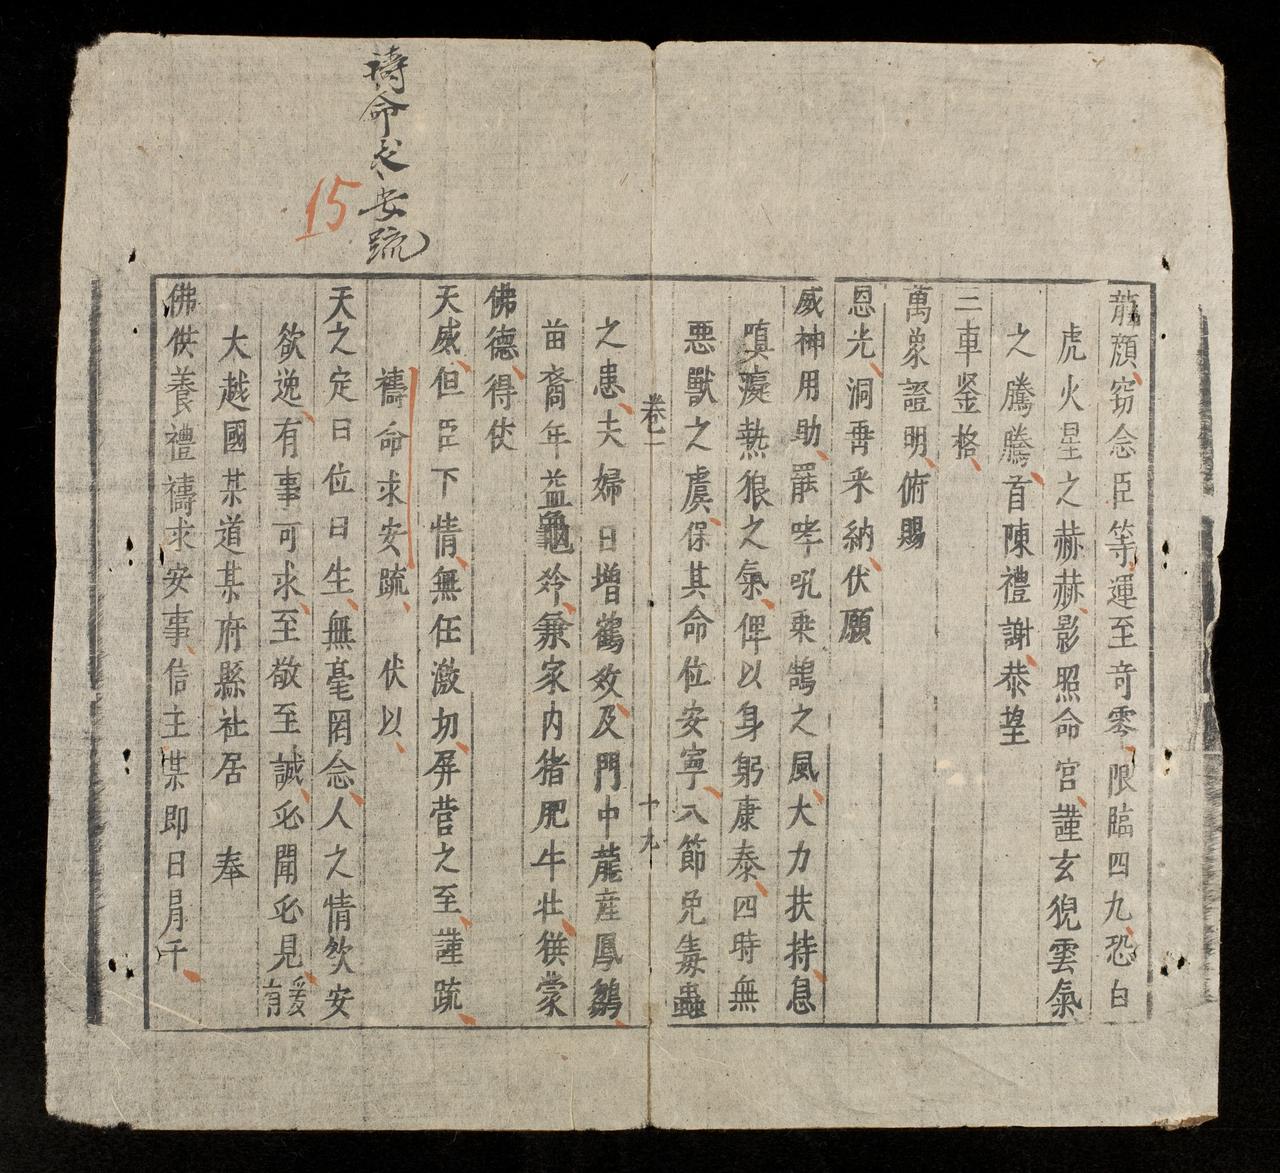 禱命求安疏
15
龍顏窃念臣等運至奇零限臨四九恐白
虎火星之赫赫影照命宮謹玄猊雲氣
之騰騰首陳禮謝恭望
三車鉴格
萬象證明俯賜
恩光洞再采納伏願
威神用助罷哮吼乗鵠之風大力扶持息
嗔癡熱狼之氣俾以身躬康泰四時無
惡獸之虞保其命位安寧八節免毒蟲
卷二
十九
之患夫婦日增鶴效及門中龍產鳳鶵
苗裔年益龜齡兼家內猪肥牛壮供蒙
佛德得伏
天威但臣下情無任激切屏营之至謹疏
禱命求安疏 伏以
天之定曰位曰生無毫罔念人之情欲安
欲逸有事可求至敬至誠必聞必見爰有
大越國某道某府縣社居 奉
佛供養禮禱求安事信主某即日月干